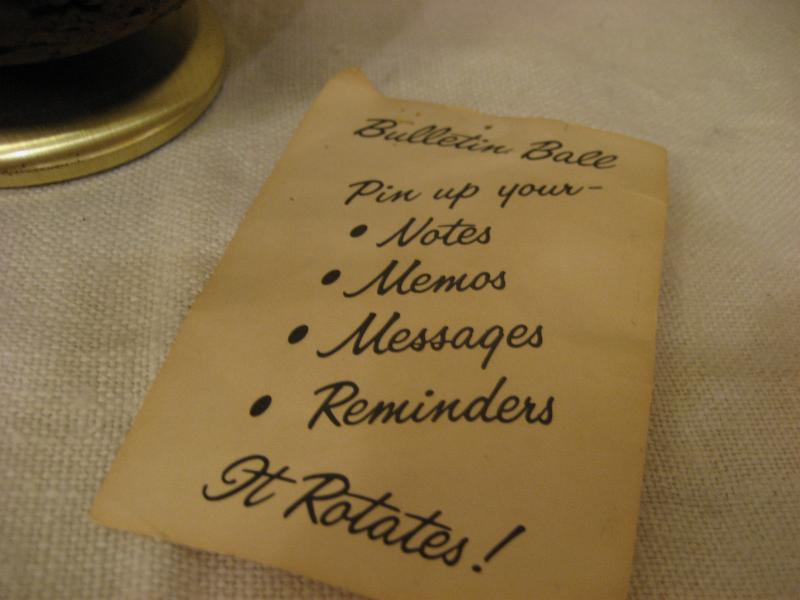 Bulletin Ball
Pin up your-
• Notes
• Memos
• Messages
• Reminders
It Rotates!